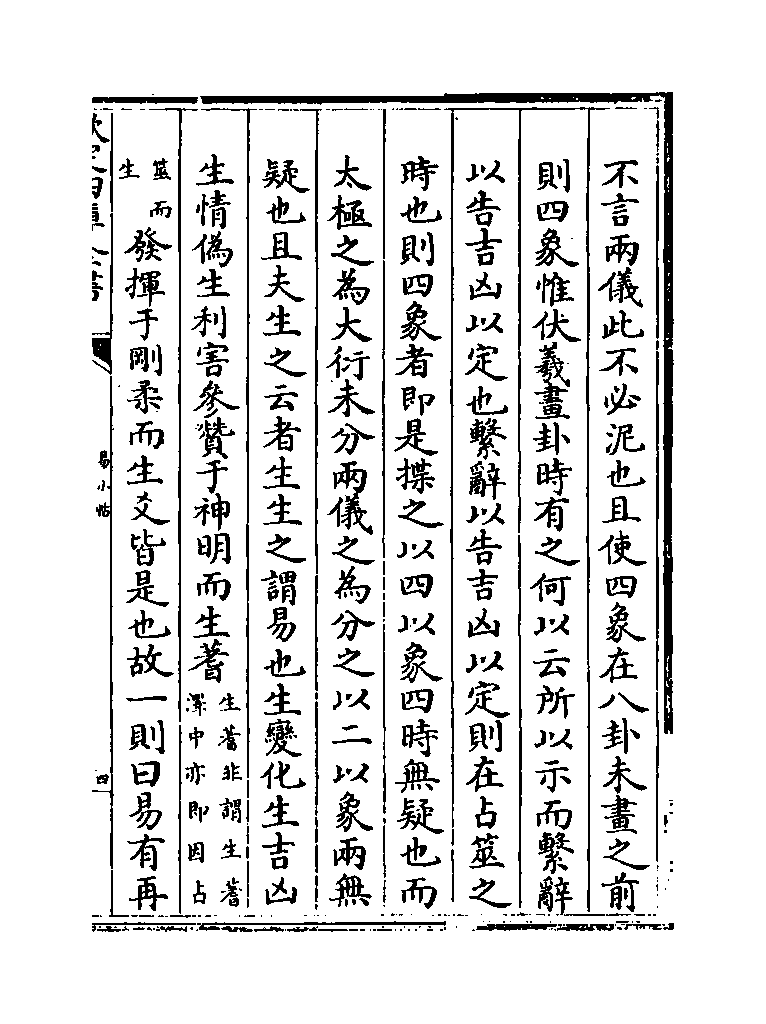 不言兩儀此不必泥也且使四象在八卦未畫之前
則四象惟伏羲畫卦時有之何以云所以示而繫辭
以告吉凶以定也繫辭以告吉凶以定則在占筮之
時也則四象者即是揲之以四以象四時無疑也而
太極之為大衍未分兩儀之為分之以二以象兩無
疑也且夫生之云者生生之謂易也生變化生吉凶
生情偽生利害參贊于神明而生蓍生蓍非謂生蓍澤中亦即因占
筮而生發揮于剛柔而生爻皆是也故一則曰易有再
欽定四庫全書
易小帖
四